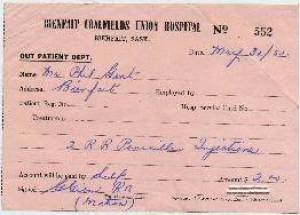 BIENFAIT COALFIELDS UNION HOSPITAL No 552
BIENFAIT, SASK.
OUT PATIENT DEPT. Date May 30/52
Name Mr Phil Grant
Address Bienfait Employed by
Patient Reg. No. Hosp. Service Card No.
Treatment
2 R R Penicillin Injections
Account will be paid by Self Amount $ 2.00
Signed RN
(Matron)